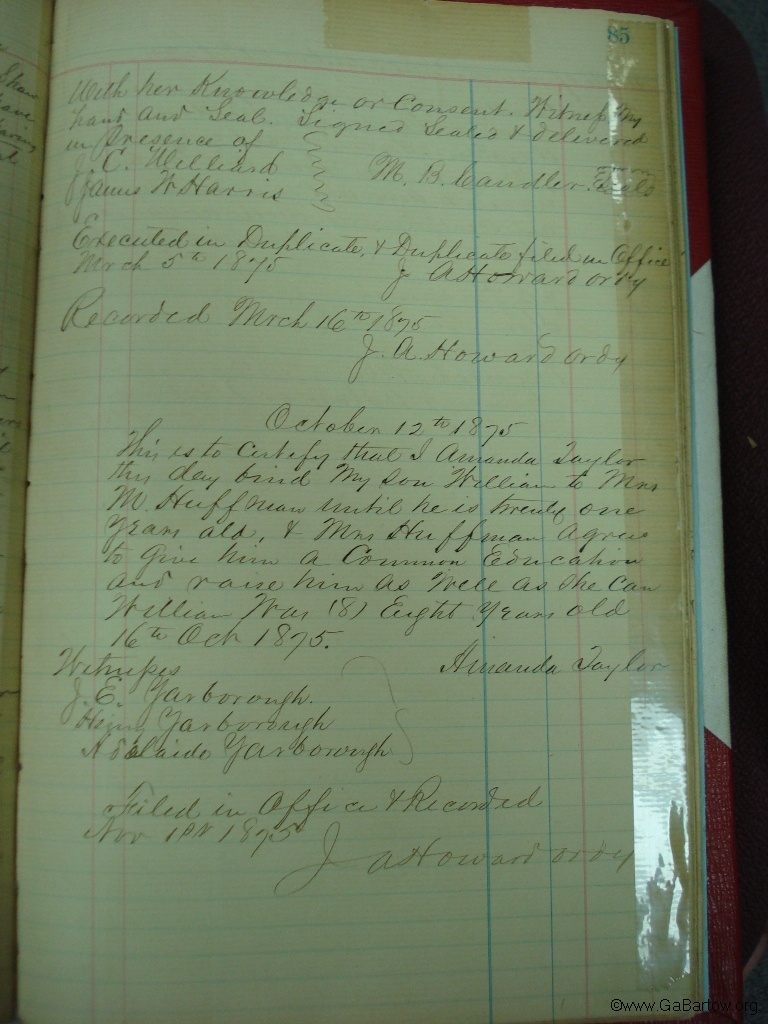 85
With her Knowledge or Consent. Witness my
hand and Seal. Signed Sealed & delivered
in Presence of
J. C. Williard
James W Harris
M. B. Candler Seal
Executed in Duplicate, & Duplicate filed in Office
Mrch 5th 1875
J A Howard ordy
Recorded Mrch 16th 1875
J. A. Howard ordy
October 12th 1875
This is to Certify that I Amanda Taylor
this day bind my Son William to Mrs
M. Huffman until he is twenty one
years old, & Mrs Huffman agrees
to give him a Common Education
and raise him as Well as She Can
William Was (8) Eight years old
16th Oct 1875.
Amanda Taylor
Witnesses
J. E. Yarborough.
Henry Yarborough
Adalaide Yarborough
Filed in Office & Recorded
Nov 1st 1875
J A Howard ordy
©www.GaBartow.org